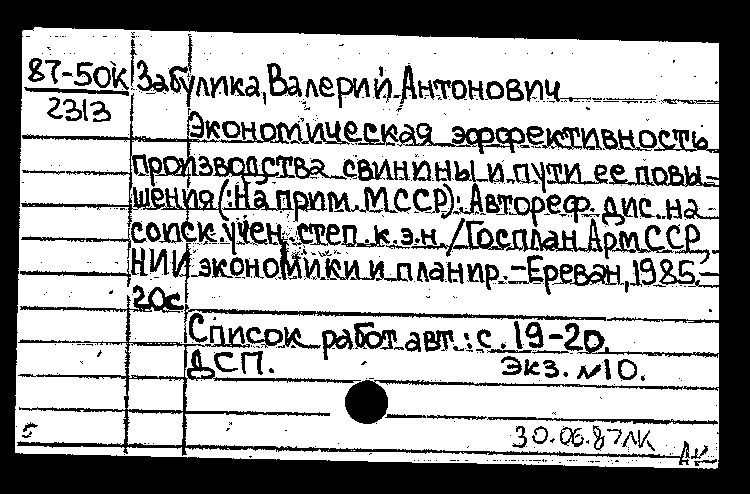 87-50К Забулика, Валерий Антонович.
2313
Экономическая эффективность
производства свинины и пути ее повы-
шения (: На прим. МССР): Автореф. дис. на
соиск. учен. степ. к.э.н. / Госплан АрмССР,
НИИ экономики и планир. - Ереван, 1985. -
20с.
Список работ авт.: с. 19-20.
ДСП. Экз. №10.
30.06.87ЛК
5 АК